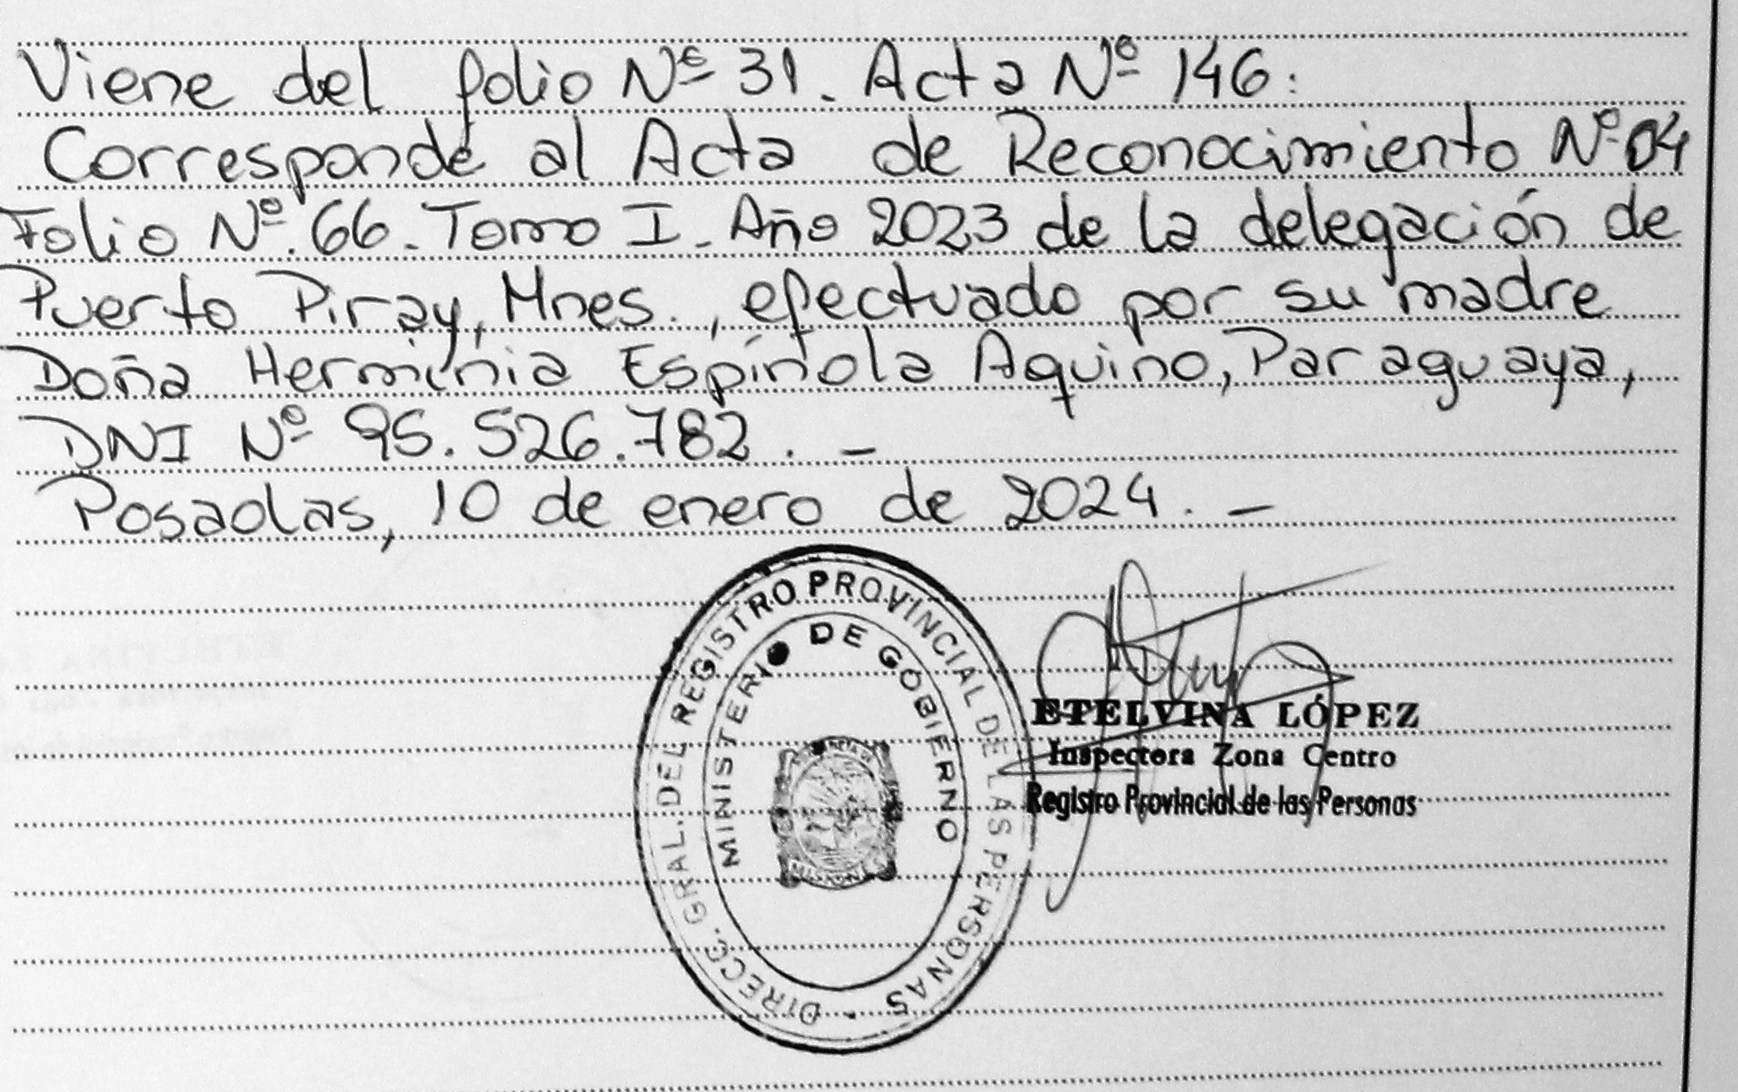 Viene del folio Nº 31. Acta Nº 146:
Corresponde al Acta de Reconocimiento Nº 04
Folio Nº 66. Tomo I. Año 2023 de la delegación de
Puerto Piray, Mnes., efectuado por su madre
Doña Herminia Espínola Aquino, Paraguaya,
DNI Nº 95.526.782. —
Posadas, 10 de enero de 2024. —
DIRECC. GRAL. DEL REGISTRO PROVINCIAL DE LAS PERSONAS
MINISTERIO DE GOBIERNO
ETELVINA LÓPEZ
Inspectora Zona Centro
Registro Provincial de las Personas